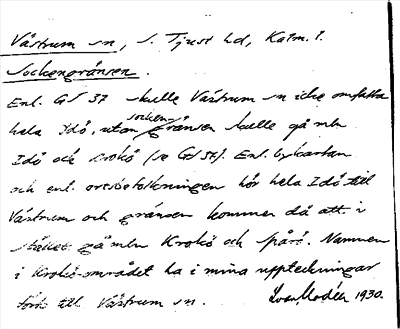 Västrum sn, S. Tjust hd, Kalm. l.
Sockengränsen.
Enl. GS 37 skulle Västrum sn icke omfatta
hela Idö, utan sockengränsen skulle gå mln
Idö och Krokö (se GS 37). Enl. bykartan
och enl. ortsbefolkningen hör hela Idö till
Västrum och gränsen kommer då att i
stället gå mln Krokö och Spårö. Namnen
i Krokö-området ha i mina uppteckningar
förts till Västrum sn. Ivar Modéer 1930.